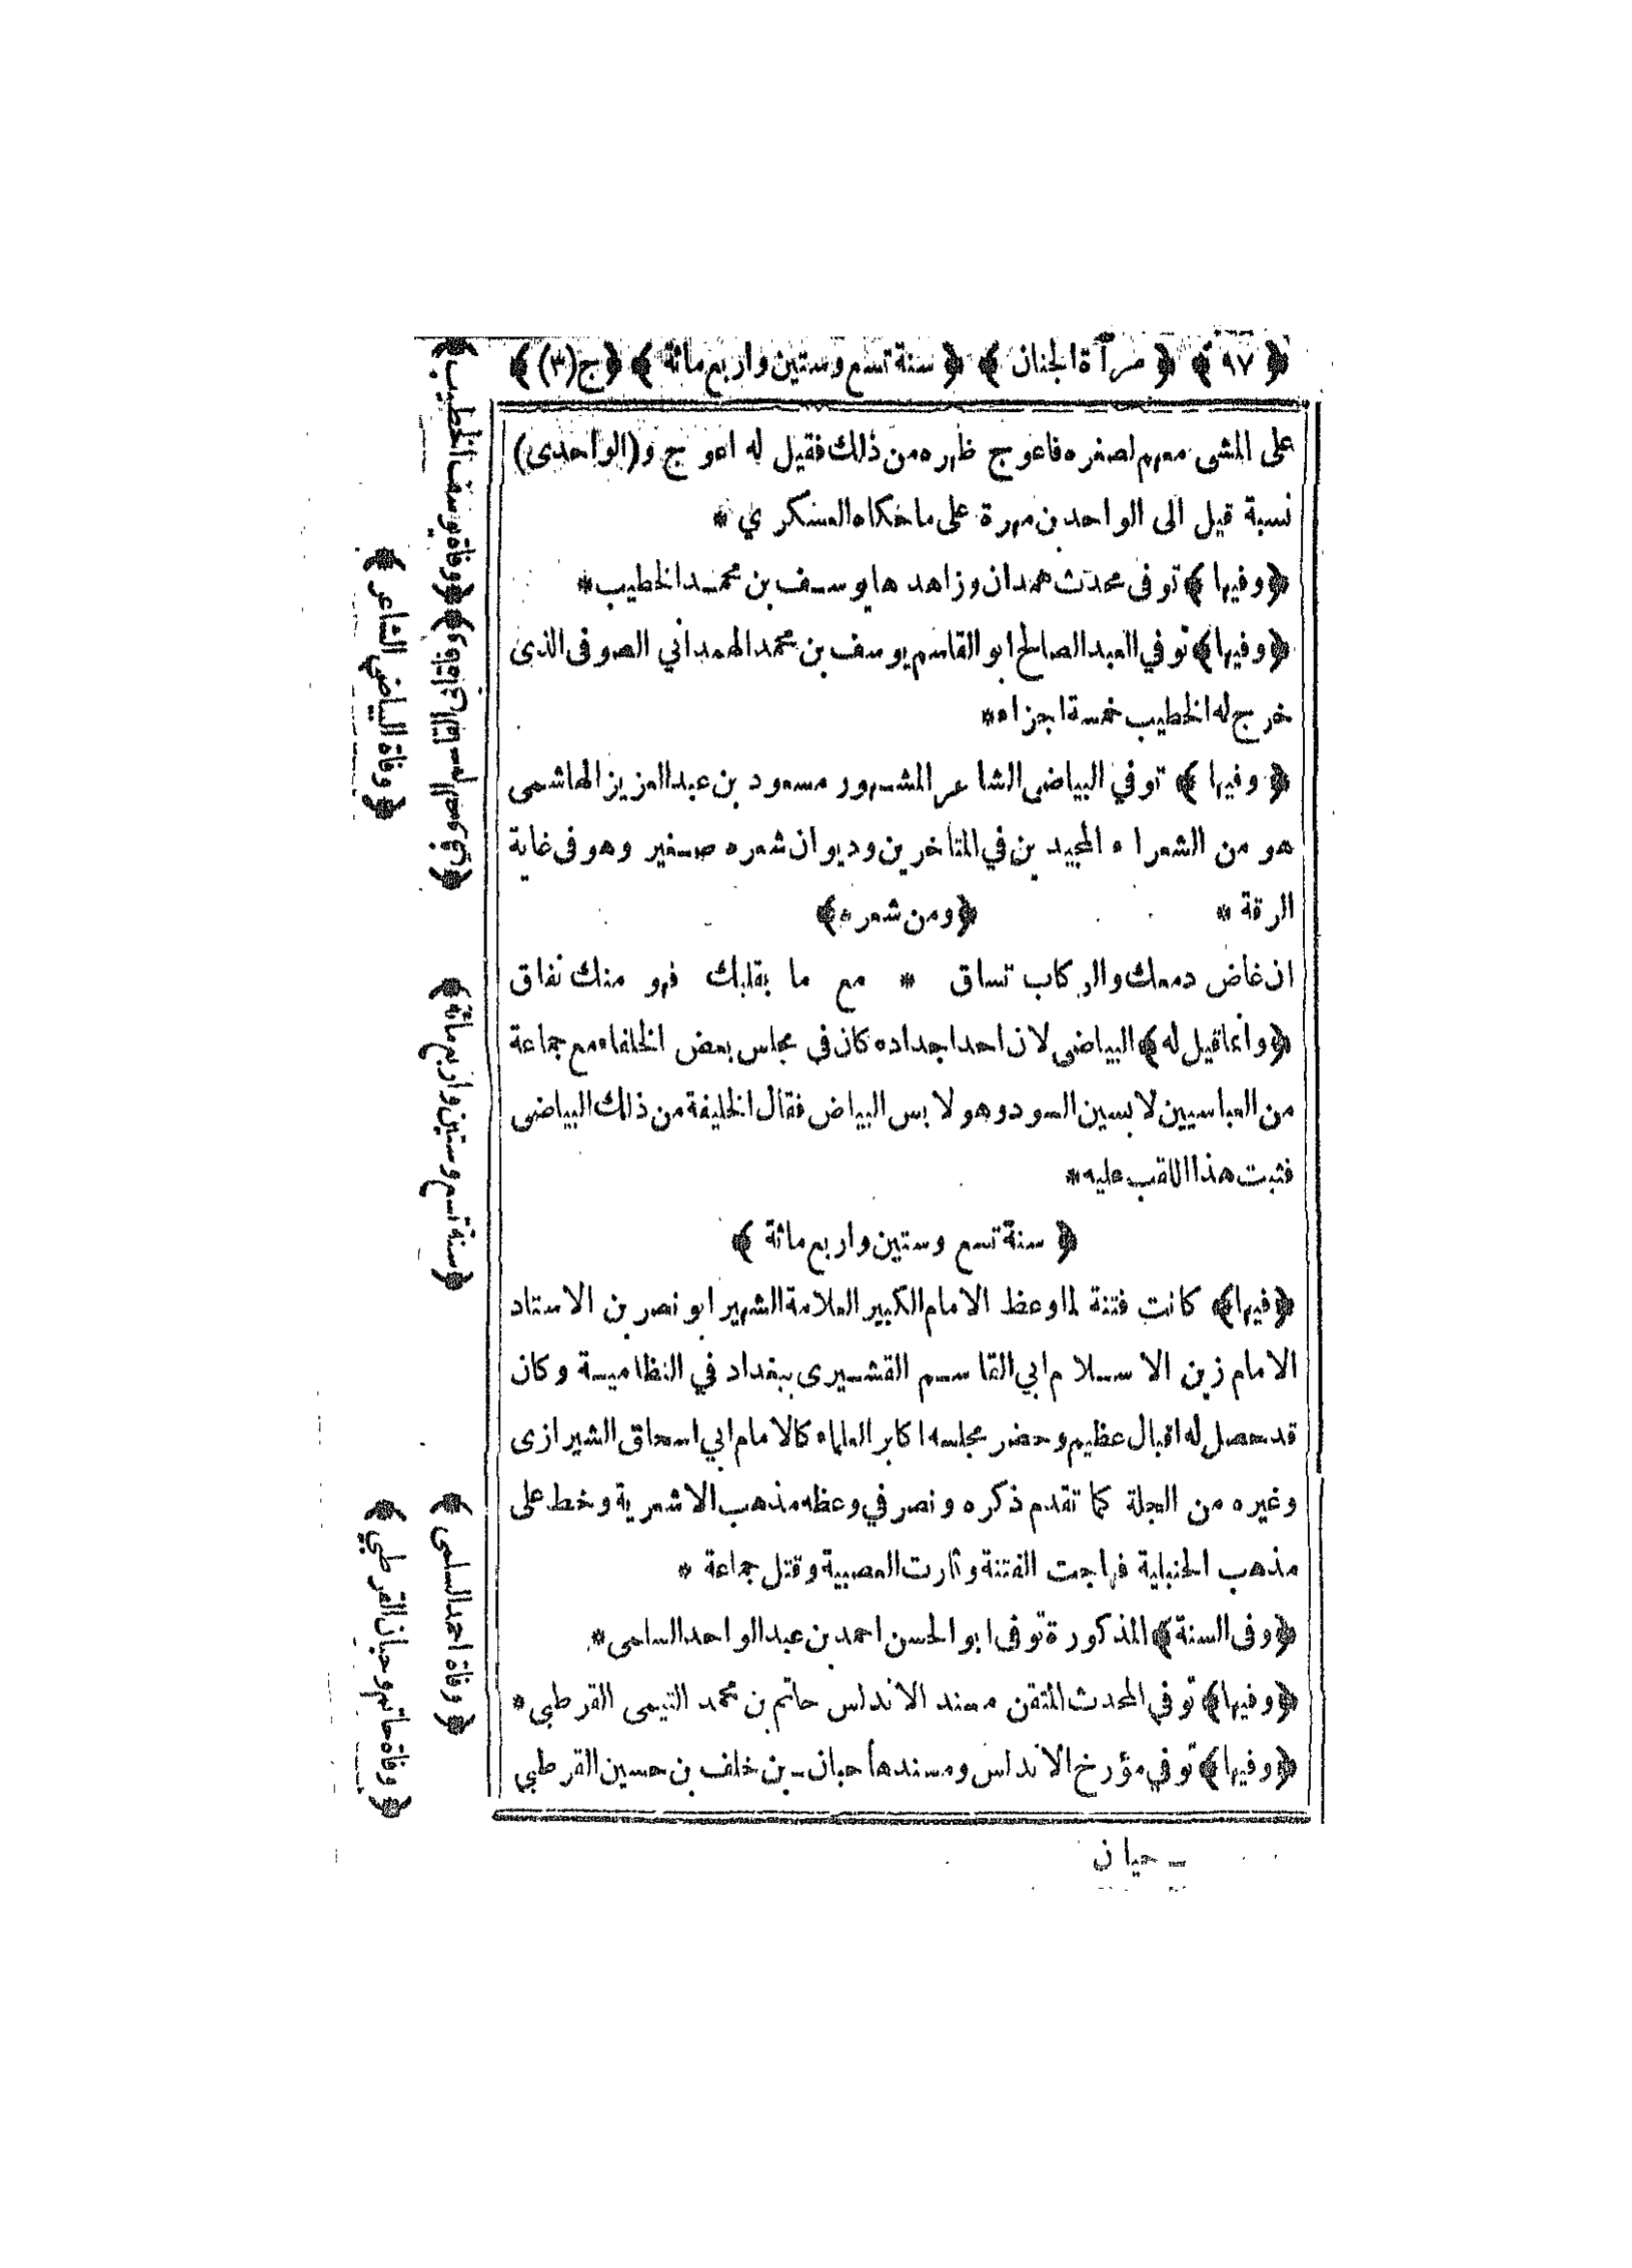 ﴿ ٩٧ ﴾ ﴿ مرآة الجنان ﴾ ﴿ سنة تسع وستين واربع مائة ﴾ ﴿ ج (٣) ﴾
على المشى معهم لصغره فاعوج ظهره من ذلك فقيل له اعوج و(الواحدى)
نسبة قيل الى الواحد بن مهرة على ما حكاه العسكري *
﴿وفيها﴾ توفى محدث همدان وزاهدها يوسف بن محمد الخطيب *
﴿وفيها﴾ توفي العبد الصالح ابو القاسم يوسف بن محمد الهمداني الصوفى الذى
خرج له الخطيب خمسة اجزاء *
﴿ وفيها ﴾ توفي البياضى الشاعر المشهور مسعود بن عبد العزيز الهاشمى
هو من الشعراء المجيدين في المتأخرين وديوان شعره صغير وهو فى غاية
الرقة * ﴿ومن شعره﴾
ان غاض دمعك والركاب تساق * مع ما بقلبك فهو منك نفاق
﴿وانما قيل له﴾ البياضى لان احد اجداده كان في مجلس بعض الخلفاء مع جماعة
من العباسيين لابسين السود وهو لابس البياض فقال الخليفة من ذلك البياضى
فثبت هذا اللقب عليه *
﴿ سنة تسع وستين واربع مائة ﴾
﴿فيها﴾ كانت فتنة لما وعظ الامام الكبير العلامة الشهير ابو نصر بن الاستاد
الامام زين الاسلام ابي القاسم القشيرى ببغداد في النظامية وكان
قد حصل له اقبال عظيم وحضر مجلسه اكابر العلماء كالامام ابي اسحاق الشيرازى
وغيره من الجلة كما تقدم ذكره ونصر في وعظه مذهب الاشعرية وخط على
مذهب الحنبلية فهاجت الفتنة وثارت العصبية وقتل جماعة *
﴿وفى السنة﴾ المذكورة توفى ابو الحسن احمد بن عبد الواحد السلمى *
﴿وفيها﴾ توفي المحدث المتقن مسند الاندلس حاتم بن محمد التيمى القرطبي *
﴿وفيها﴾ توفي مؤرخ الاندلس ومسندها حبان بن خلف بن حسين القرطبي
ـ حيان
﴿وفاة يوسف الخطيب﴾
﴿وفاة البياضي الشاعر﴾
﴿سنة تسع وستين واربع مائة﴾
﴿وفاة احمد السلمى﴾
﴿وفاة حاتم وحبان القرطبي﴾